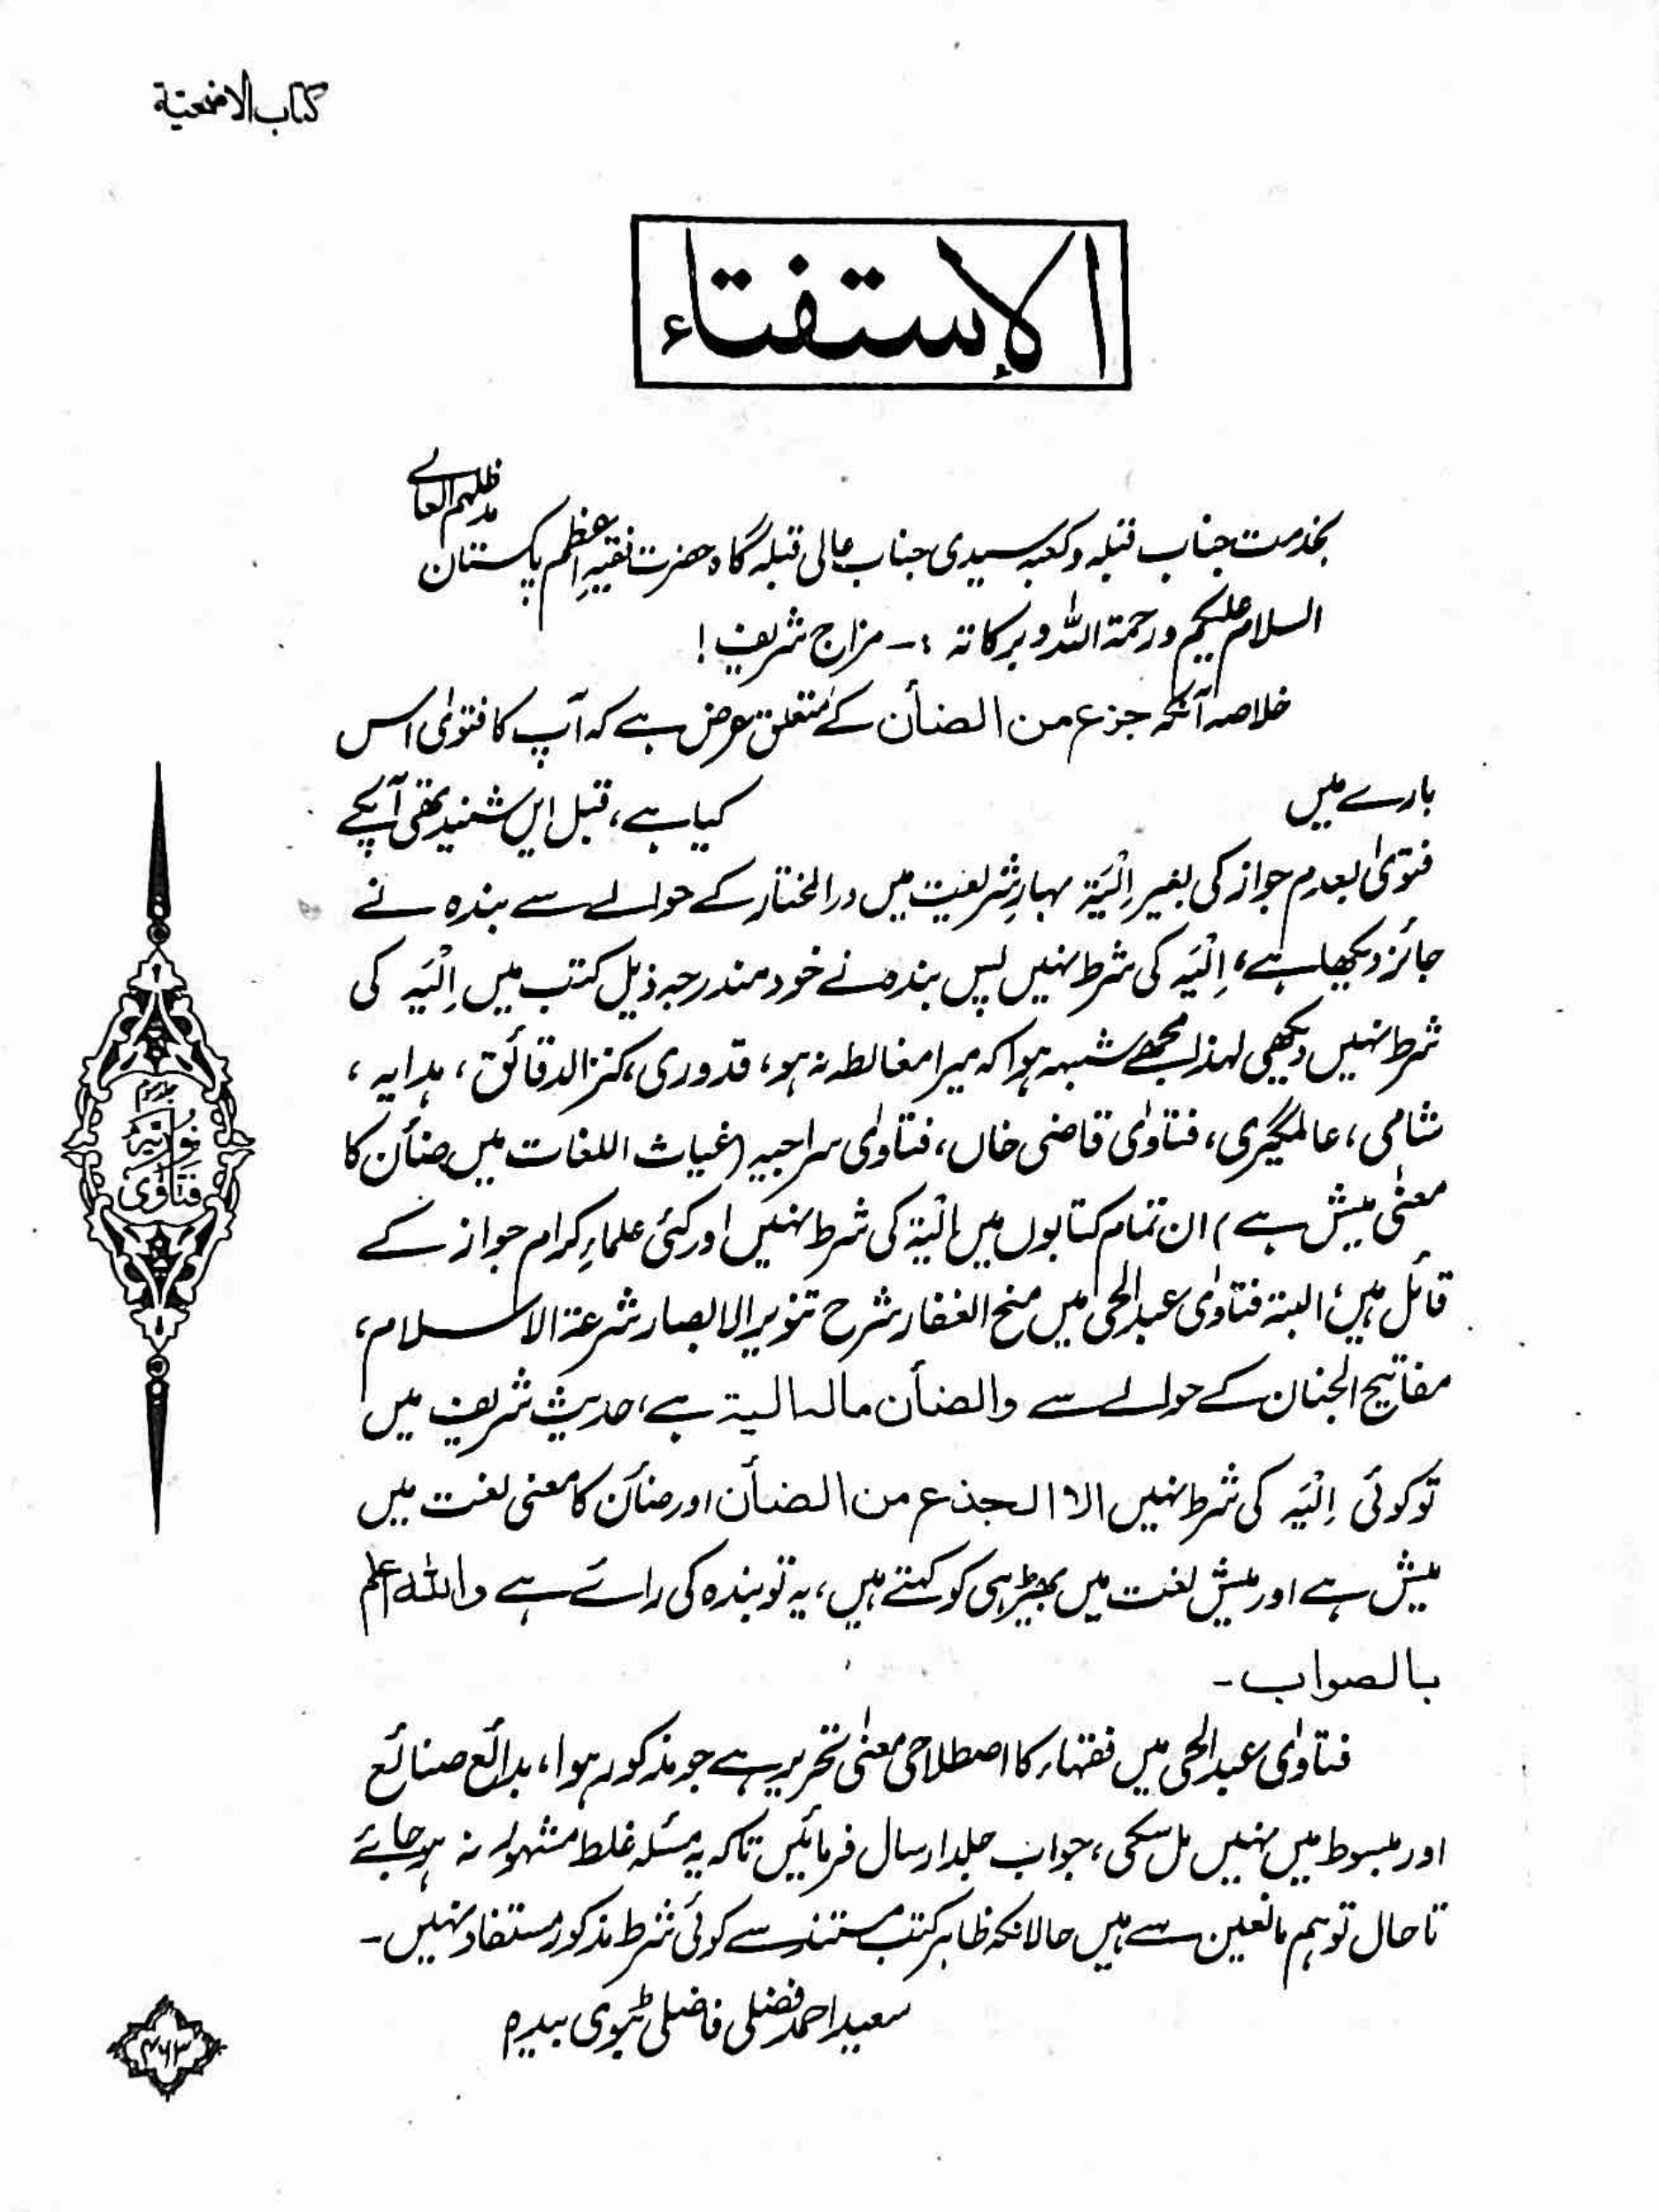 كتاب الاضحية
الإستفتاء
بخدمت جناب قبلہ و کعبہ سیدی جناب عالی قبلہ گاہ حضرت فقیہِ اعظم پاکستان مدظلہم العالے
السلام علیکم ورحمۃ اللہ وبرکاتہ :۔ مزاج شریف !
خلاصہ آنکہ جزع من الضأن کے متعلق عرض ہے کہ آپ کا فتوٰی اس
بارے میں کیا ہے، قبل ایں شنید تھی آپکے
فتوٰی بعدم جواز کی بغیر اِلْیَۃ بہارِ شریعت میں درالمختار کے حوالے سے بندہ نے
جائز دیکھا ہے، اِلْیَہ کی شرط نہیں پس بندہ نے خود مندرجہ ذیل کتب میں اِلْیَہ کی
شرط نہیں دیکھی لہذا مجھے شبہہ ہوا کہ میرا مغالطہ نہ ہو، قدوری، کنز الدقائق، ہدایہ،
شامی، عالمگیری، فتاوٰی قاضی خاں، فتاوٰی سراجیہ (غیاث اللغات میں ضأن کا
معنٰی میش ہے) ان تمام کتابوں میں اِلْیَۃ کی شرط نہیں اور کئی علماءِ کرام جواز کے
قائل ہیں، البتہ فتاوٰی عبدالحی میں منح الغفار شرح تنویر الابصار شرعۃ الاسلام،
مفاتیح الجنان کے حوالے سے والضأن مالہا الیۃ ہے، حدیث شریف میں
تو کوئی اِلْیَہ کی شرط نہیں الا الجذع من الضأن اور ضأن کا معنی لغت میں
میش ہے اور میش لغت میں بھیڑ ہی کو کہتے ہیں، یہ تو بندہ کی رائے ہے واللہ اعلم
بالصواب۔
فتاوٰی عبدالحی میں فقہاء کا اصطلاحی معنٰی تحریر ہے جو مذکور ہوا، بدائع صنائع
اور مبسوط میں نہیں مل سکی، جواب جلد ارسال فرمائیں تاکہ یہ مسئلہ غلط مشہور نہ ہو جائے
تا حال تو ہم مانعین سے ہیں حالانکہ ظاہر کتب مستند سے کوئی شرط مذکور مستفاد نہیں۔
سعید احمد فضلی فاضلی
فتاوٰی نوریہ جلد سوم
۴۶۳